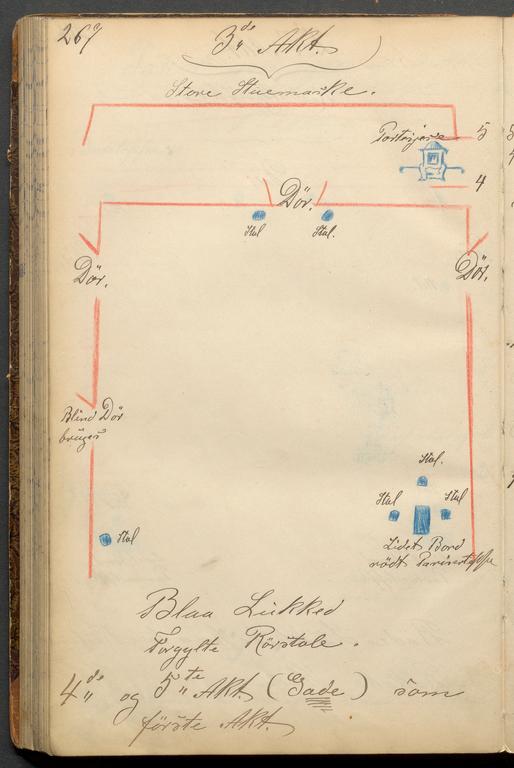 267
3die Akt.
Store Stuemaske.
Portchaise 5
4
Dör.
Stol Stol.
Dör. Dör.
Blind Dör
bruges
Stol.
Stol Stol
Stol
Lidet Bord
rödt
Blaa Lukked
Forgylte Rörstole.
4de og 5te Akt. (Gade) som
förste Akt.